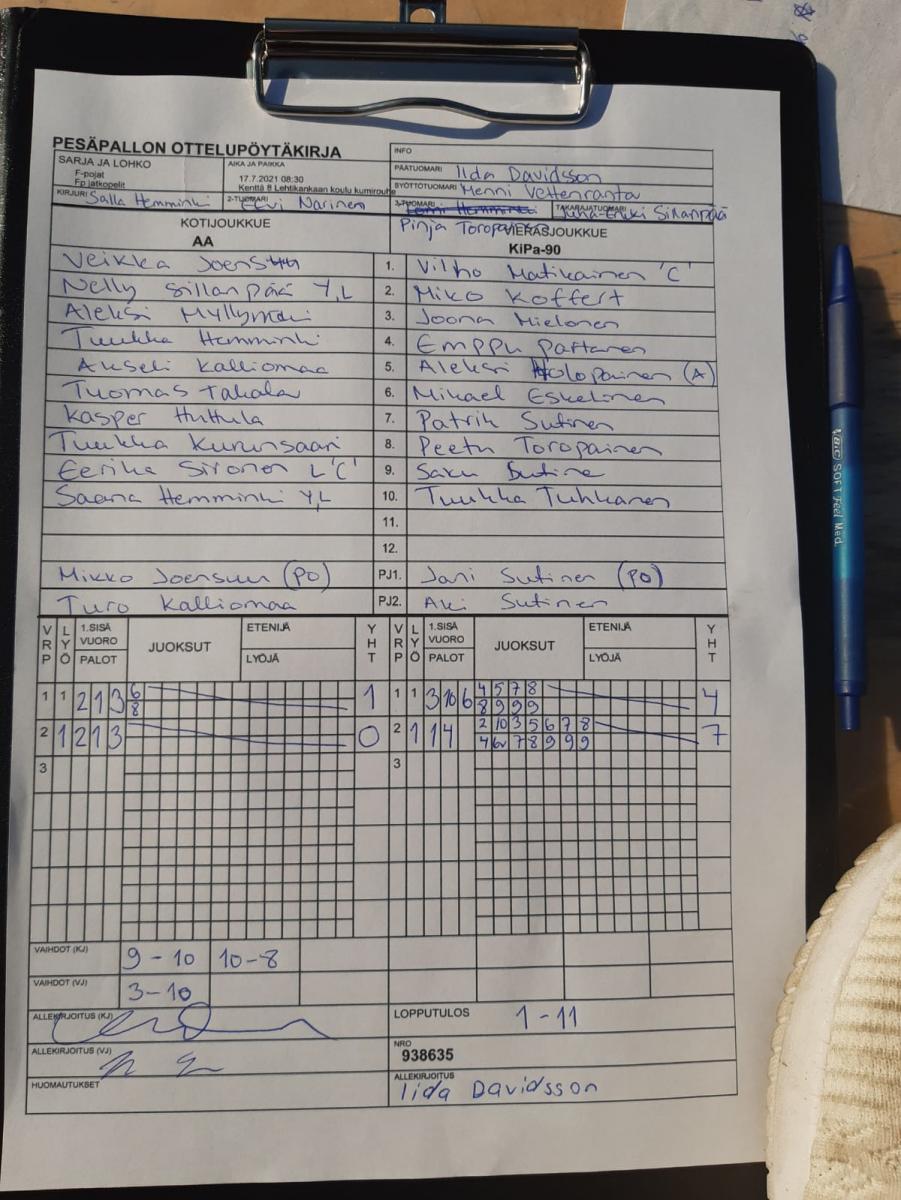 PESÄPALLON OTTELUPÖYTÄKIRJA
INFO
SARJA JA LOHKO
F-pojat
Fp jatkopelit
AIKA JA PAIKKA
17.7.2021 08:30
Kenttä 8 Lehtikankaan koulu kumirouhe
PÄÄTUOMARI Iida Davidsson
SYÖTTÖTUOMARI Henni Vettenranta
KIRJURI Salla Hemminki
2-TUOMARI Eevi Narinen
3-TUOMARI
TAKARAJATUOMARI Juha-Erkki Sillanpää
Pinja Toropainen
KOTIJOUKKUE
AA
VIERASJOUKKUE
KiPa-90
Veikka Joensuu 1. Vilho Matikainen 'C'
Nelly Sillanpää Y,L 2. Miko Koffert
Aleksi Myllymäki 3. Joona Mielonen
Tuukka Hemminki 4. Emppu Partanen
Anseli Kalliomaa 5. Aleksi Holopainen (A)
Tuomas Takala 6. Mikael Eskelinen
Kasper Huttula 7. Patrik Sutinen
Tuukka Kurunsaari 8. Peetu Toropainen
Eerika Sironen L 'C' 9. Saku Sutine
Saana Hemminki Y,L 10. Tuukka Tuhkanen
11.
12.
Mikko Joensuu (PO) PJ1. Jani Sutinen (PO)
Turo Kalliomaa PJ2. Aki Sutinen
VRP LYÖ 1.SISÄ VUORO PALOT JUOKSUT ETENIJÄ LYÖJÄ YHT VRP LYÖ 1.SISÄ VUORO PALOT JUOKSUT ETENIJÄ LYÖJÄ YHT
1 1 2 1 3 6 1 1 1 3 10 6 4 5 7 8 4
8 8 9 9 9
2 1 2 1 3 0 2 1 1 4 2 10 3 5 6 7 8 7
4 6v 7 8 9 9 9
3 3
VAIHDOT (KJ) 9-10 10-8
VAIHDOT (VJ) 3-10
ALLEKIRJOITUS (KJ)
LOPPUTULOS 1-11
ALLEKIRJOITUS (VJ)
NRO
938635
HUOMAUTUKSET
ALLEKIRJOITUS
Iida Davidsson
BIC SOFT Feel Med.